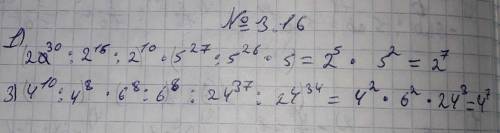 №3.16
1)
2²⁰ : 2¹⁵ : 2¹⁰ · 5²⁷ : 5²⁶ · 5 = 2⁵ · 5² = 2⁷
3) 4¹⁰ : 4⁸ · 6⁸ : 6⁸ : 24³⁷ : 24³⁴ = 4² · 6² · 24³ = 4⁷